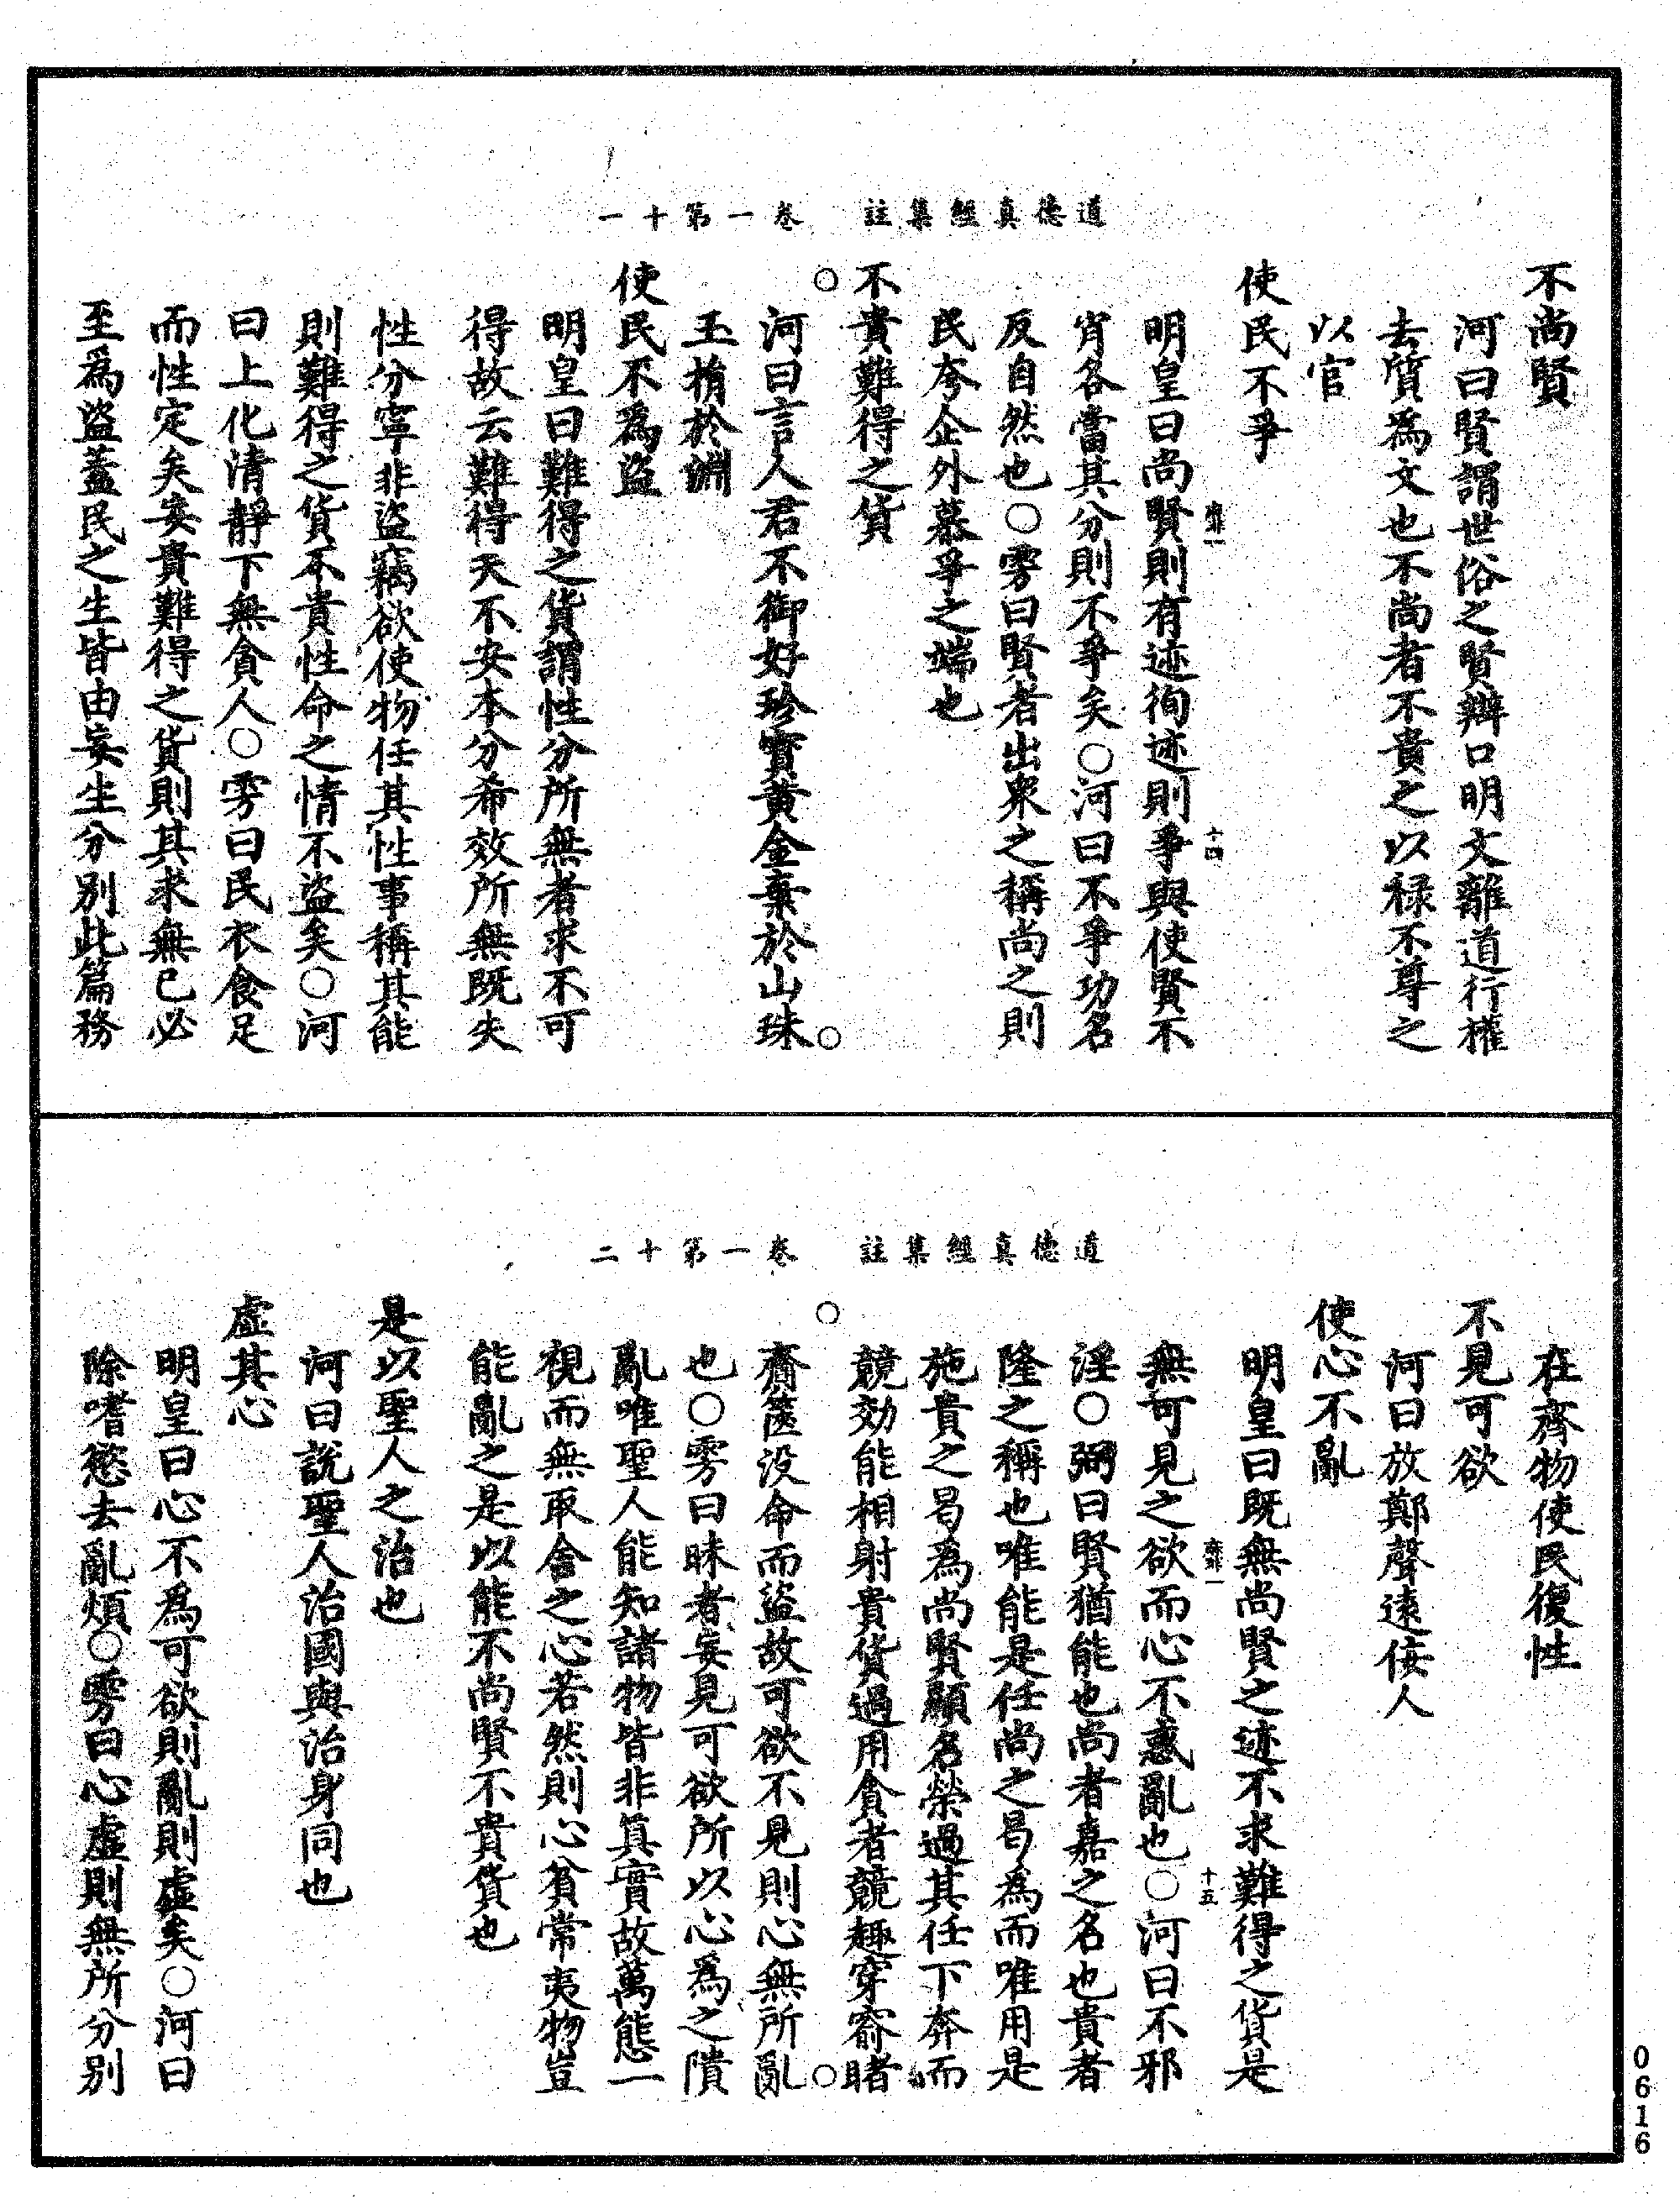 道德真經集註　卷一第十一
不尚賢
河曰賢謂世俗之賢辯口明文離道行權
去質為文也不尚者不貴之以祿不尊之
以官
使民不爭
明皇曰尚賢則有迹徇迹則爭興使賢不
肖各當其分則不爭矣○河曰不爭功名
反自然也○雱曰賢者出衆之稱尚之則
民夸企外慕爭之端也
不貴難得之貨
河曰言人君不御好珍寶黃金棄於山珠
玉捐於淵
使民不為盜
明皇曰難得之貨謂性分所無者求不可
得故云難得夫不安本分希效所無既失
性分寧非盜竊欲使物任其性事稱其能
則難得之貨不貴性命之情不盜矣○河
曰上化清靜下無貪人○雱曰民衣食足
而性定矣妄貴難得之貨則其求無已必
至為盜蓋民之生皆由妄生分別此篇務
道德真經集註　卷一第十二
在齊物使民復性
不見可欲
河曰放鄭聲遠佞人
使心不亂
明皇曰既無尚賢之迹不求難得之貨是
無可見之欲而心不惑亂也○河曰不邪
淫○弼曰賢猶能也尚者嘉之名也貴者
隆之稱也唯能是任尚之曷為而唯用是
施貴之曷為尚賢顯名榮過其任下奔而
競効能相射貴貨過用貪者競趣穿窬睹
齎篋没命而盜故可欲不見則心無所亂
也○雱曰昧者妄見可欲所以心為之隤
亂唯聖人能知諸物皆非真實故萬態一
視而無取舍之心若然則心貧常夷物豈
能亂之是以能不尚賢不貴貨也
是以聖人之治也
河曰說聖人治國與治身同也
虛其心
明皇曰心不為可欲則亂則虛矣○河曰
除嗜慾去亂煩○雱曰心虛則無所分別
十四
十五
0616